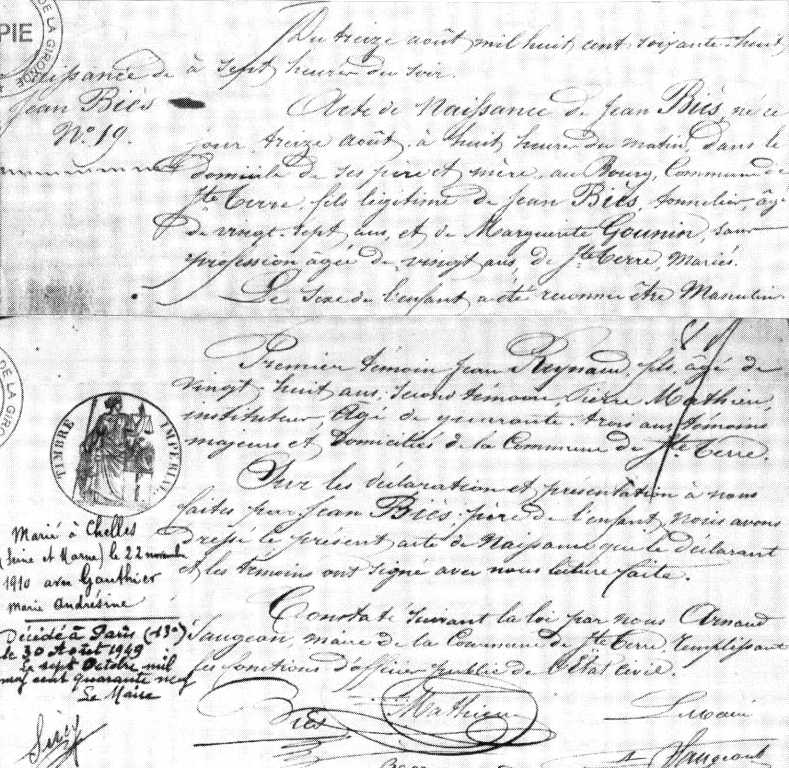 PIE
DE LA GIRONDE
Du treize août mil huit cent soixante-huit
Naissance de à sept heures du soir.
Jean Biès
Nº 19.
Acte de Naissance de Jean Biès, né ce
jour treize août, à huit heures du matin, dans le
domicile de ses père et mère, au Bourg, Commune de
Ste Terre, fils légitime de Jean Biès, tonnelier, âgé
de vingt-sept ans, et de Marguerite Gounin, sans
profession âgée de vingt ans, de Ste Terre, Mariés.
Le Sexe de l'enfant a été reconnu être Masculin.
Premier témoin Jean Reynaud, fils, âgé de
vingt-huit ans, second témoin, Pierre Mathieu,
instituteur, âgé de quarante-trois ans, témoins
majeurs et Domiciliés de la Commune de Ste Terre.
DE LA GIRO
TIMBRE IMPERIAL
Sur les déclaration et présentation à nous
faites par Jean Biès père de l'enfant, nous avons
dressé le présent acte de Naissance que le déclarant
et les témoins ont signé avec nous lecture faite.
Constaté suivant la loi par nous Arnaud
Saugeon, maire de la Commune de Ste Terre, remplissant
les fonctions d'officier public de l'Etat Civil.
Marié à Chelles
(Seine et Marne) le 22 novembre
1910 avec Gauthier
Marie Andrésine
Décédé à Paris (13e)
le 30 Août 1949
le sept Octobre mil
neuf cent quarante neuf
Le Maire
Biès Mathieu Le Maire